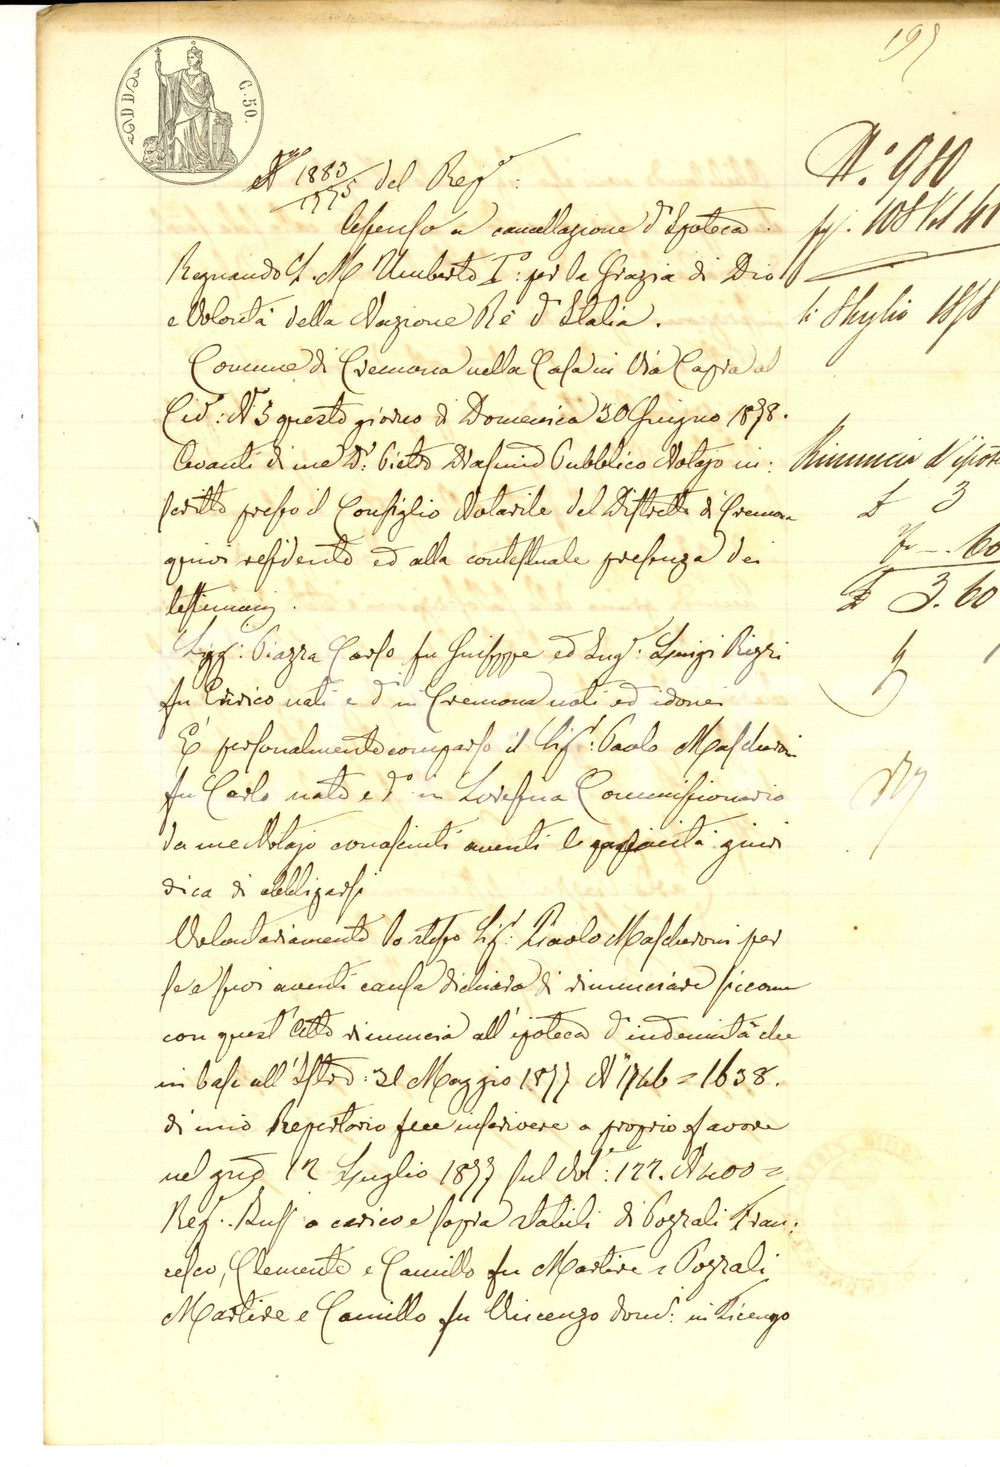 195
C. 50.
N° 980
N° 1883 / 1775 del Rep°:
Assenso a cancellazione d'Ipoteca.
Regnando S. M. Umberto I°: per la Grazia di Dio
e Volontà della Nazione Rè d'Italia.
li 8 luglio 1878
Comune di Cremona nella Casa in Via Capra al
Civ°: N° 5 questo giorno di Domenica 30 Giugno 1878.
Avanti di me Dr. Pietro Pubblico Notajo in:
Rinuncia d'ipote
scritto presso il Consiglio Notarile del Distretto di Cremona
£ 3
quivi residente ed alla contestuale presenza dei
60
testimonj.
£ 3.60
Sigg.i Piazza Carlo fu Giuseppe ed Ing.r Luigi Rizzi
fu Enrico nati e d.ti in Cremona noti ed idonei
È personalmente comparso il Sig.r Paolo Mascheroni
fu Carlo nato e d.o in Soresina Commissionario
da me Notajo conosciuti aventi le capacità giuri
dica di obbligarsi
Volontariamente lo stesso Sig.r Paolo Mascheroni per
se e suoi aventi causa dichiara di rinunciare siccome
con quest'Atto rinuncia all'ipoteca d'indennità che
in base all'Istro: 31 Maggio 1877 N° 1746 = 1638.
di mio Repertorio fece inscrivere a proprio favore
nel giorno 12 Luglio 1877 sul Vol.: 122. N° 400 =
Reg. Suss a carico e sopra stabili di Pozzali Fran:
cesco, Clemente e Camillo fu Martire e Pozzali
Martire e Camillo fu Vincenzo domi: in Ricengo